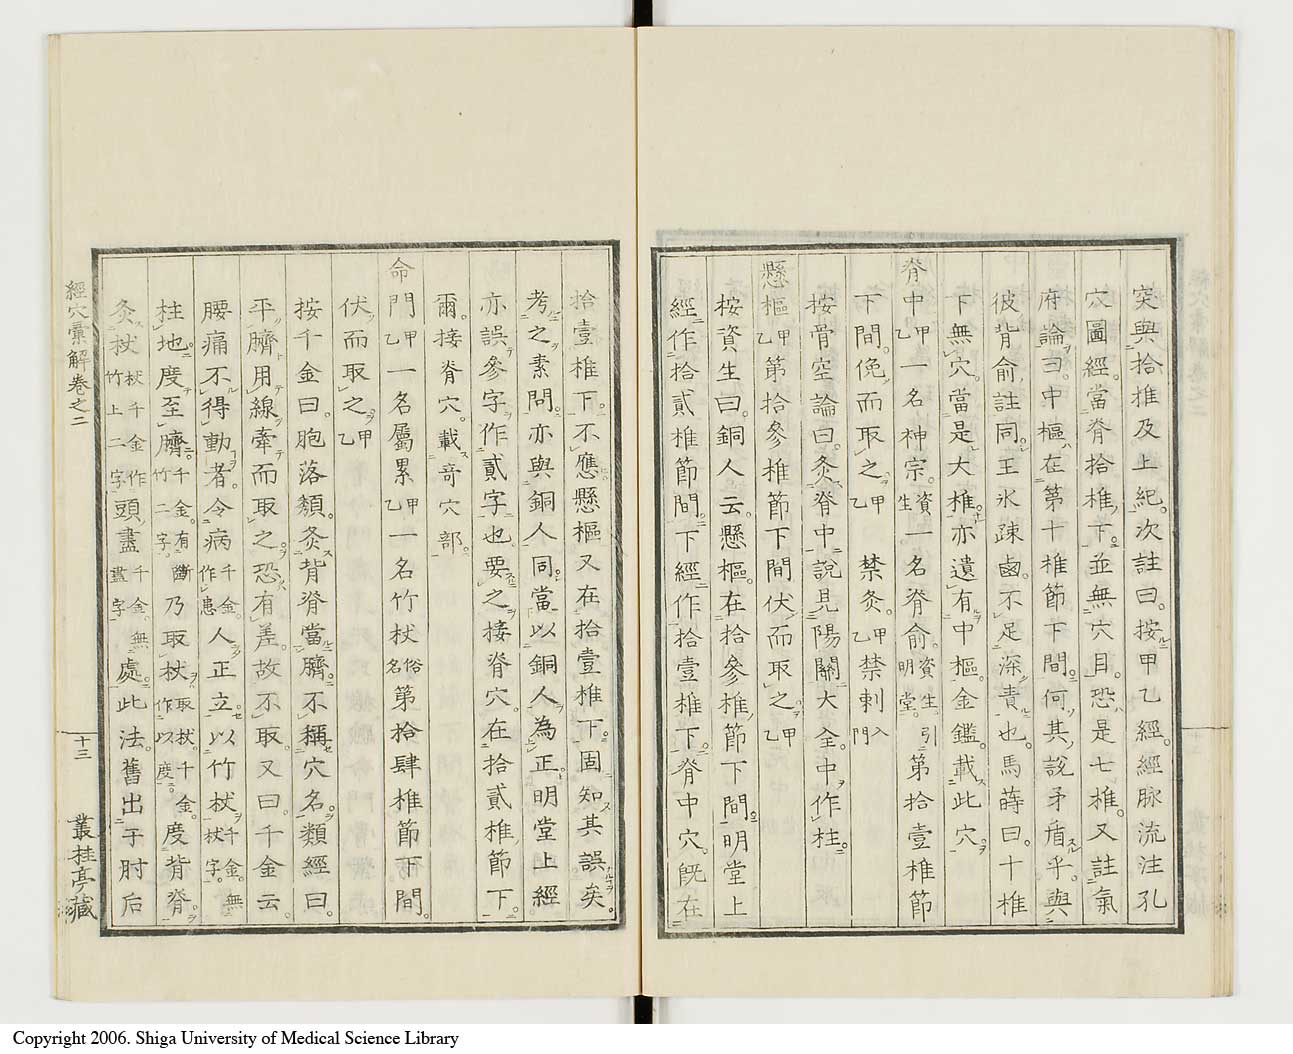 突與拾椎及上紀次註曰按甲乙經經脉流注孔
穴圖經當脊拾椎下並無穴目恐是七椎又註氣
府論曰中樞在第十椎節下間何其說矛盾乎與
彼背俞註同王氷疎鹵不足深責也馬蒔曰十椎
下無穴當是大椎亦遺有中樞金鑑載此穴
脊中甲乙一名神宗資生一名脊俞資生引明堂第拾壹椎節
下間俛而取之甲乙 禁灸甲乙禁刺入門
按骨空論曰灸脊中說見陽關大全中作柱
懸樞甲乙第拾參椎節下間伏而取之甲乙
按資生曰銅人云懸樞在拾參椎節下間明堂上
經作拾貳椎節間下經作拾壹椎下脊中穴既在
拾壹椎下不應懸樞又在拾壹椎下固知其誤矣
考之素問亦與銅人同當以銅人為正明堂上經
亦誤參字作貳字也要之接脊穴在拾貳椎節下
爾接脊穴載奇穴部
命門甲乙一名屬累甲乙一名竹杖俗名第拾肆椎節下間
伏而取之甲乙
按千金曰胞落頹灸背脊當臍不稱穴名類經曰
平臍用線牽而取之恐有差故不取又曰千金云
腰痛不得動者令病千金作患人正立以竹杖千金無杖字
柱地度至臍千金有竹二字斷乃取杖取杖千金作以度度背脊
灸杖杖千金作竹上二字頭盡千金無盡字處此法舊出于肘后
經穴彙解卷之二
十三
叢桂亭藏
Copyright 2006. Shiga University of Medical Science Library